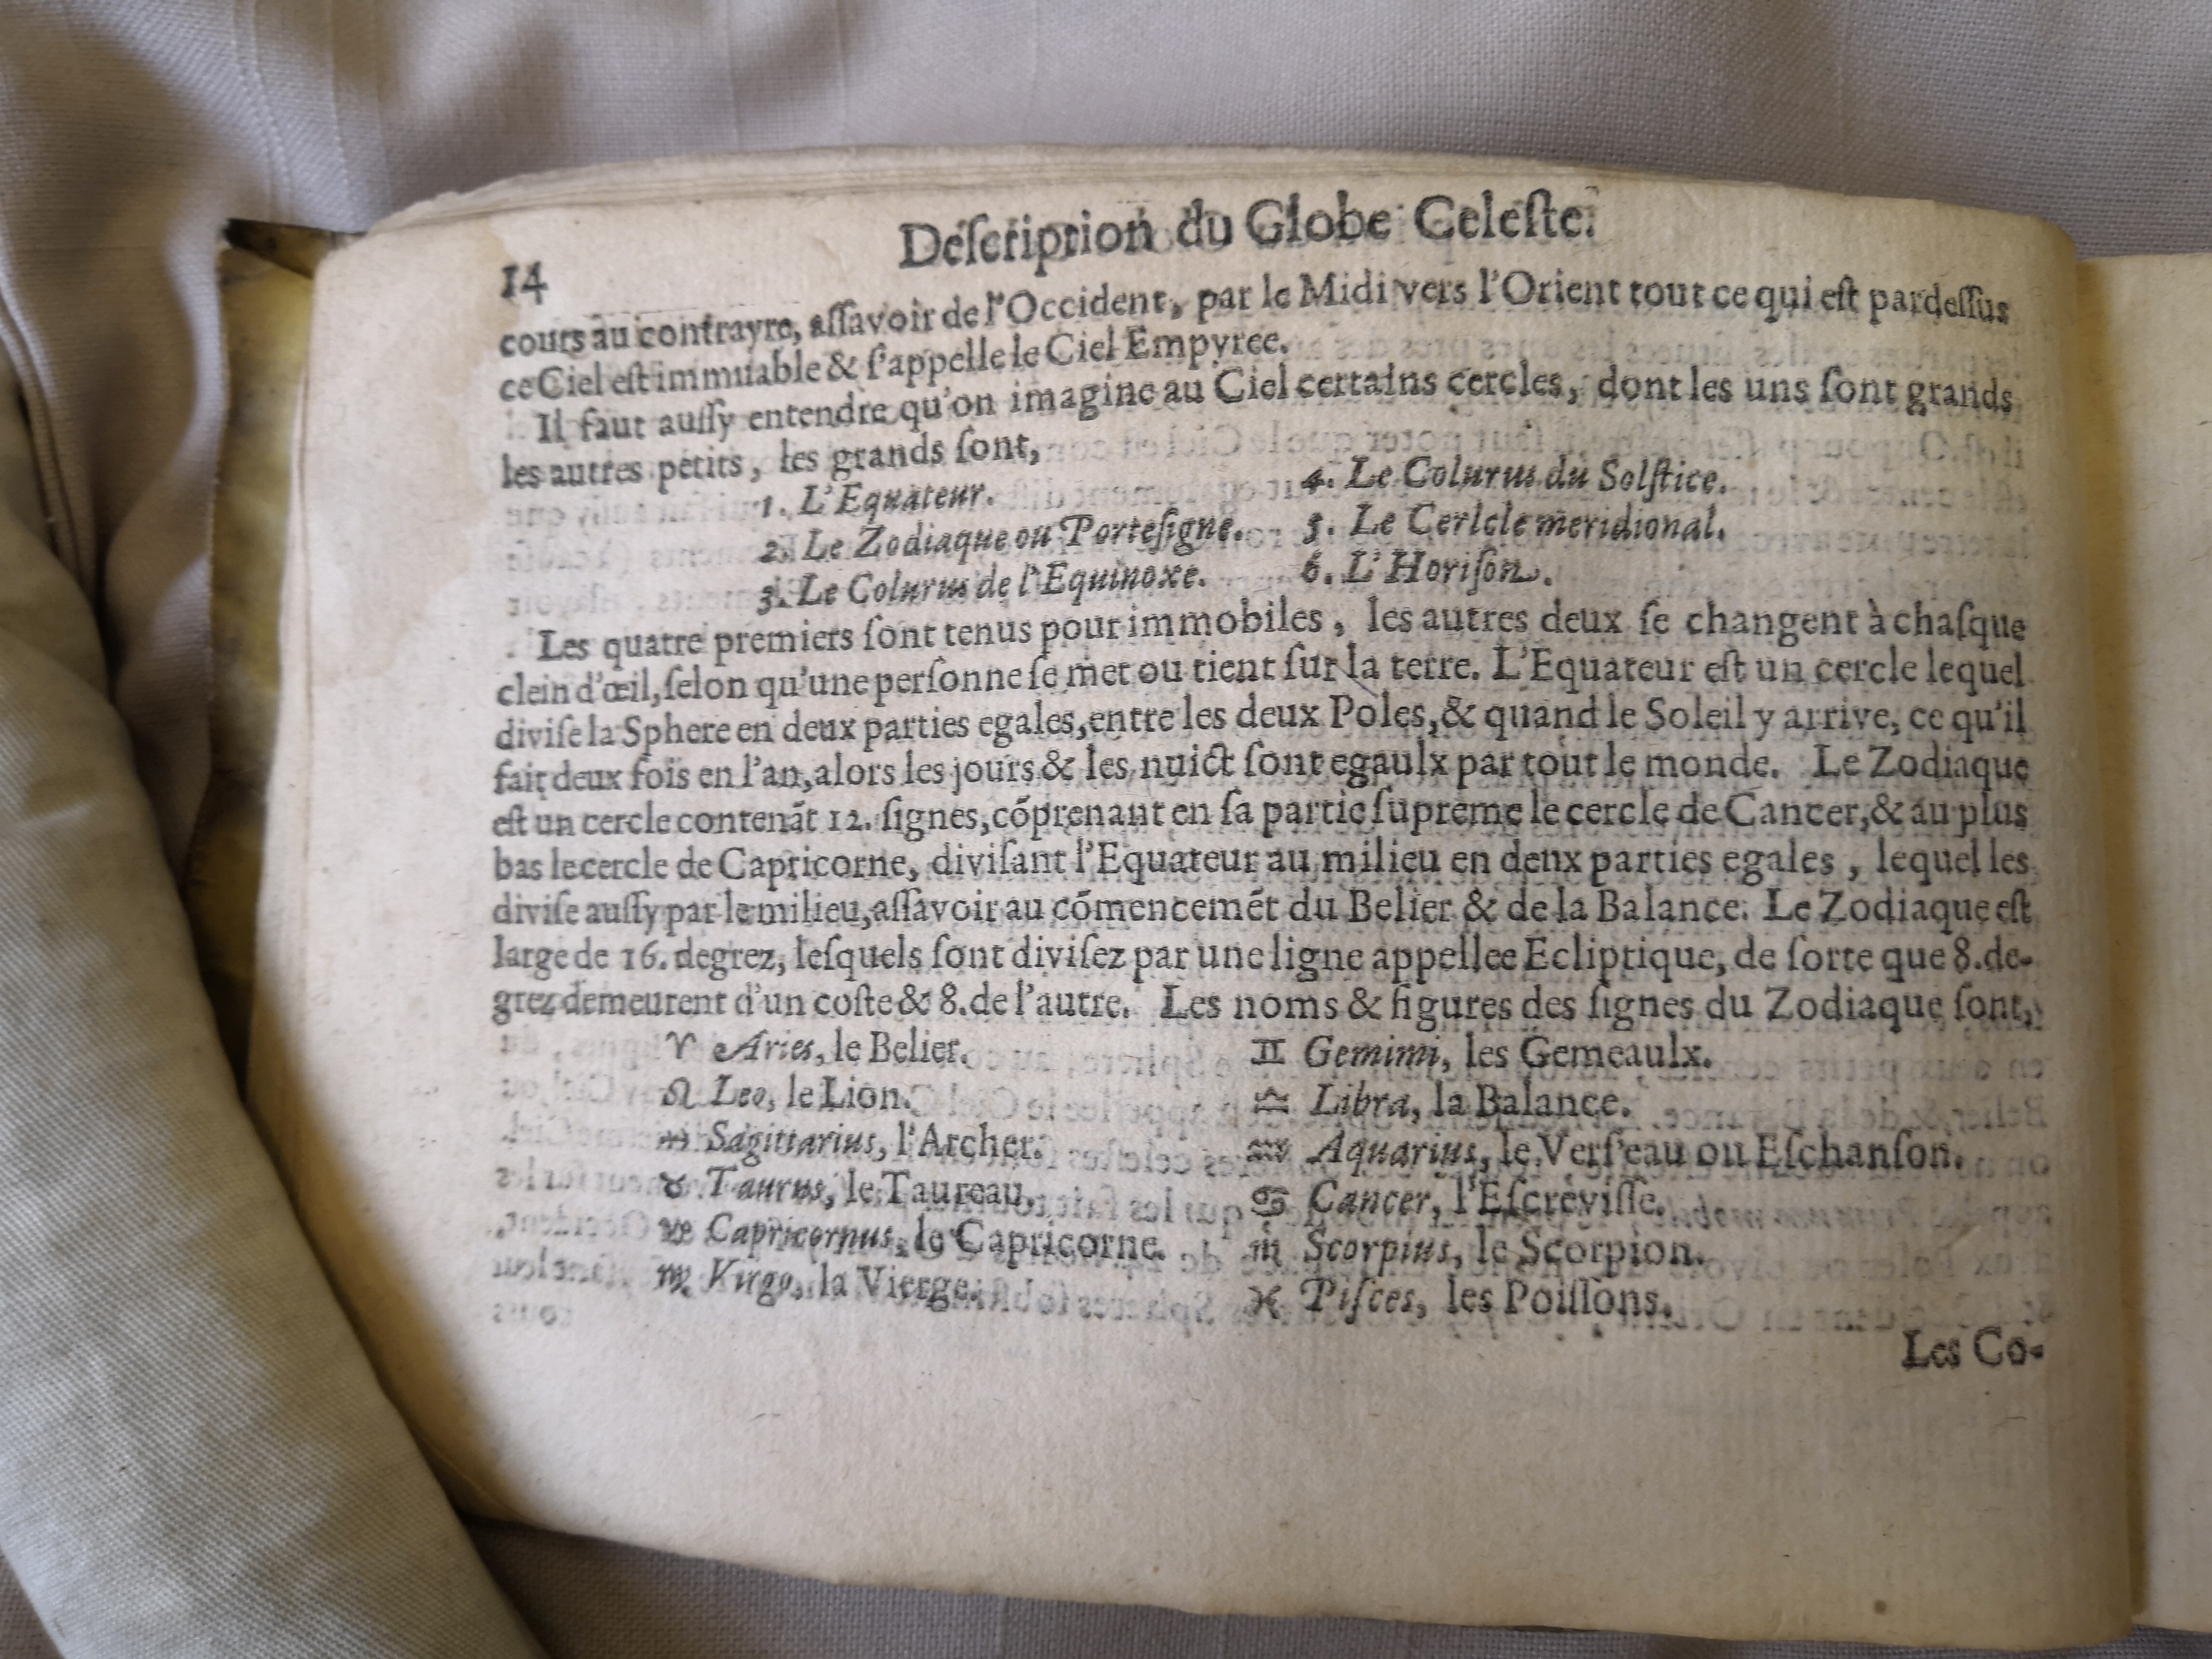 Deſcription du Globe Celeſte.
14
cours au contrayre, aſſavoir de l'Occident, par le Midi vers l'Orient tout ce qui eſt pardeſſus
ce Ciel eſt immuable & ſ'appelle le Ciel Empyree.
Il faut auſſy entendre qu'on imagine au Ciel certains cercles, dont les uns ſont grands
les autres petits, les grands ſont,
1. L'Equateur.
2. Le Zodiaque ou Porteſigne.
3. Le Colurus de l'Equinoxe.
4. Le Colurus du Solſtice.
5. Le Cerlcle meridional.
6. L'Horiſon.
Les quatre premiers ſont tenus pour immobiles, les autres deux ſe changent à chaſque
clein d'œil, ſelon qu'une perſonne ſe met ou tient ſur la terre. L'Equateur eſt un cercle lequel
diviſe la Sphere en deux parties egales, entre les deux Poles, & quand le Soleil y arrive, ce qu'il
fait deux fois en l'an, alors les jours & les nuict ſont egaulx par tout le monde. Le Zodiaque
eſt un cercle contenãt 12. ſignes, cõprenant en ſa partie ſupreme le cercle de Cancer, & au plus
bas le cercle de Capricorne, diviſant l'Equateur au milieu en deux parties egales, lequel les
diviſe auſſy par le milieu, aſſavoir au cõmencemẽt du Belier & de la Balance. Le Zodiaque eſt
large de 16. degrez, leſquels ſont diviſez par une ligne appellee Ecliptique, de ſorte que 8. de-
grez demeurent d'un coſte & 8. de l'autre. Les noms & figures des ſignes du Zodiaque ſont,
♈ Aries, le Belier.
♌ Leo, le Lion.
♐ Sagittarius, l'Archer.
♉ Taurus, le Taureau.
♑ Capricornus, le Capricorne.
♍ Virgo, la Vierge.
♊ Gemimi, les Gemeaulx.
♎ Libra, la Balance.
♒ Aquarius, le Verſ'eau ou Eſchanſon.
♋ Cancer, l'Eſcreviſſe.
♏ Scorpius, le Scorpion.
♓ Piſces, les Poiſſons.
Les Co-